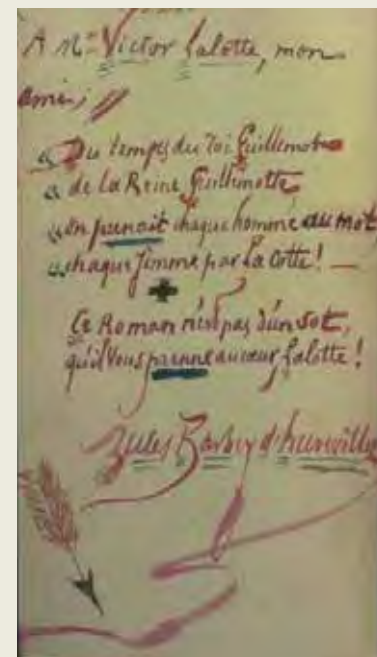 A Mr Victor Lalotte, mon
ami,
« Du temps du Roi Guillemot
« de la Reine Guillemotte
« On prenait chaque homme au mot
« chaque femme par la Cotte ! —
Ce Roman n'est pas d'un sot,
qu'il vous prenne au cœur, Lalotte !
Jules Barbey d'Aurevilly